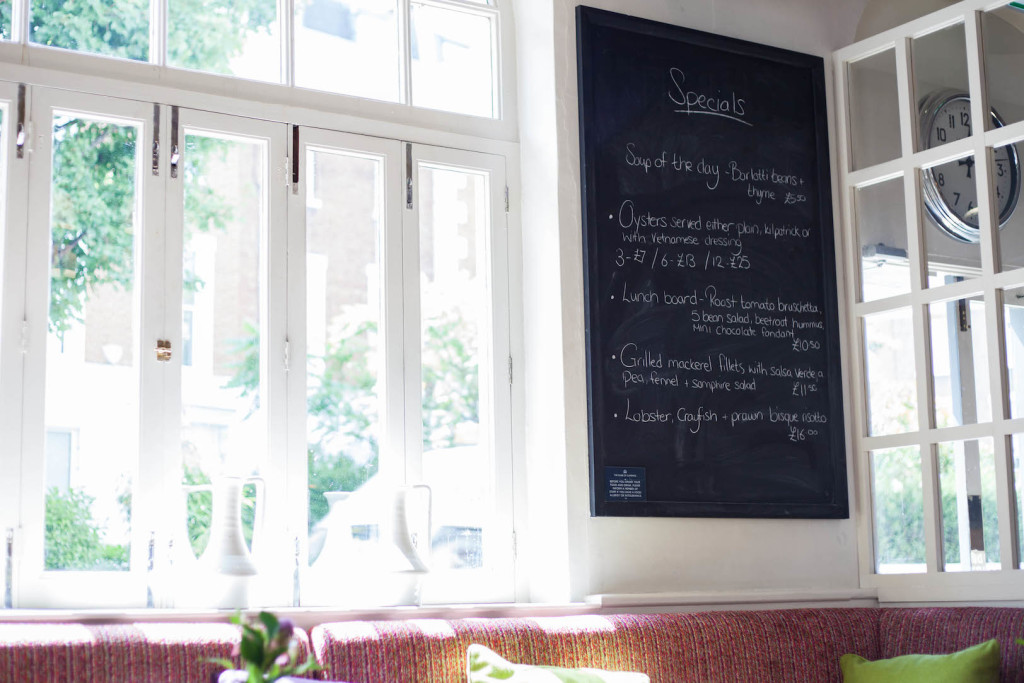 Specials
Soup of the day - Borlotti beans +
thyme £5.50
• Oysters served either plain, kilpatrick or
with vietnamese dressing
3 - £7 / 6 - £13 / 12 - £25
• Lunch board - Roast tomato bruschetta,
5 bean salad, beetroot hummus,
mini chocolate fondant
£10.50
• Grilled mackerel fillets with salsa verde, a
pea, fennel + samphire salad £11.50
• Lobster, Crayfish + prawn bisque risotto
£16.00
10 11 12